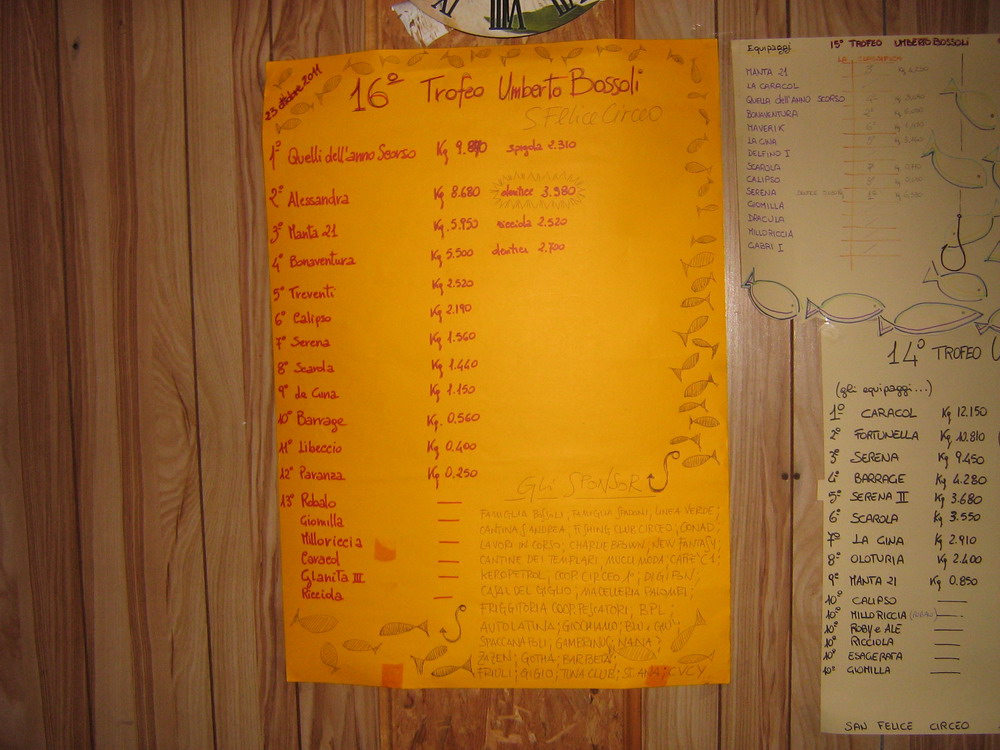 23 ottobre 2011
16° Trofeo Umberto Bossoli
S. Felice Circeo
1° Quelli dell'anno Scorso Kg 9.870 spigola 2.310
2° Alessandra Kg 8.680 dentice 3.980
3° Manta 21 Kg. 5.950 ricciola 2.520
4° Bonaventura Kg 5.500 dentice 2.700
5° Treventi Kg 2.520
6° Calipso Kg 2.190
7° Serena Kg 1.560
8° Scarola Kg 1.440
9° La Gina Kg 1.150
10° Barrage Kg. 0.560
11° Libeccio Kg 0.400
12° Paranza Kg 0.250
13° Robalo —
Giomilla —
Milloriccia —
Caracol —
Glanita III —
Ricciola —
Gli SPONSOR
FAMIGLIA FAMIGLIA LINEA VERDE;
CANTINA S. ANDREA; FISHING CLUB CIRCEO; CONAD;
LAVORI IN CORSO; CHARLIE BROWN; NEW FANTASY;
CANTINE DEI TEMPLARI; MUCCI MODA; CAFFE' C1;
KEROPETROL; COOP. CIRCEO 1°; DIGIFON;
CASAL DEL GIGLIO; MACELLERIA PALOMBI;
FRIGGITORIA COOP. PESCATORI, BPL;
AUTOLATINA; GIOCHIAMO; BLU e GIU';
SPACCANAPOLI; GAMBRINUS;
ZAZEN; GOTHA; BARTBERY
FRIULI; GIGIO; TUNA CLUB; ST. ANNA; CVCY.
Equipaggi 15° TROFEO UMBERTO BOSSOLI
LA CLASSIFICA
MANTA 21
LA CARACOL
QUELLI dell'ANNO SCORSO
BONAVENTURA
MAVERIK
LA GINA
DELFINO I
SCAROLA
CALIPSO
SERENA
GIOMILLA
DRACULA
MILLORICCIA
GABRI I
14° TROFEO U
(gli equipaggi...)
1° CARACOL Kg 12.150
2° FORTUNELLA Kg 10.810
3° SERENA Kg 9.450
4° BARRAGE Kg 4.280
5° SERENA II Kg 3.680
6° SCAROLA Kg 3.550
7° LA GINA Kg 2.910
8° OLOTURIA Kg 2.400
9° MANTA 21 Kg 0.850
10° CALIPSO —
10° MILLORICCIA —
10° ROBY e ALE —
10° RICCIOLA —
10° ESAGERATA —
10° GIOMILLA —
SAN FELICE CIRCEO